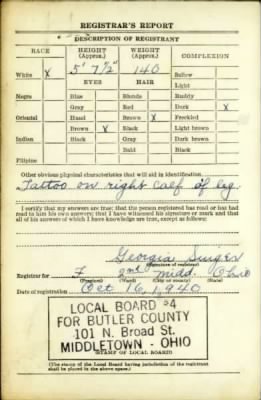 REGISTRAR'S REPORT
DESCRIPTION OF REGISTRANT
RACE HEIGHT (Approx.) WEIGHT (Approx.) COMPLEXION
5' 7½" 140
White X Sallow
EYES HAIR Light
Negro Blue Blonde Ruddy
Gray Red Dark X
Oriental Hazel Brown X Freckled
Brown X Black Light brown
Indian Black Gray Dark brown
Bald Black
Filipino
Other obvious physical characteristics that will aid in identification
Tattoo on right calf of leg
I certify that my answers are true; that the person registered has read or has had
read to him his own answers; that I have witnessed his signature or mark and that
all of his answers of which I have knowledge are true, except as follows:
Georgia Singer
(Signature of registrar)
Registrar for F 2nd Midd. Ohio
(Precinct) (Ward) (City or county) (State)
Date of registration Oct 16, 1940
LOCAL BOARD #4
FOR BUTLER COUNTY
101 N. Broad St.
MIDDLETOWN - OHIO
(STAMP OF LOCAL BOARD)
(The stamp of the Local Board having jurisdiction of the registrant
shall be placed in the above space.)